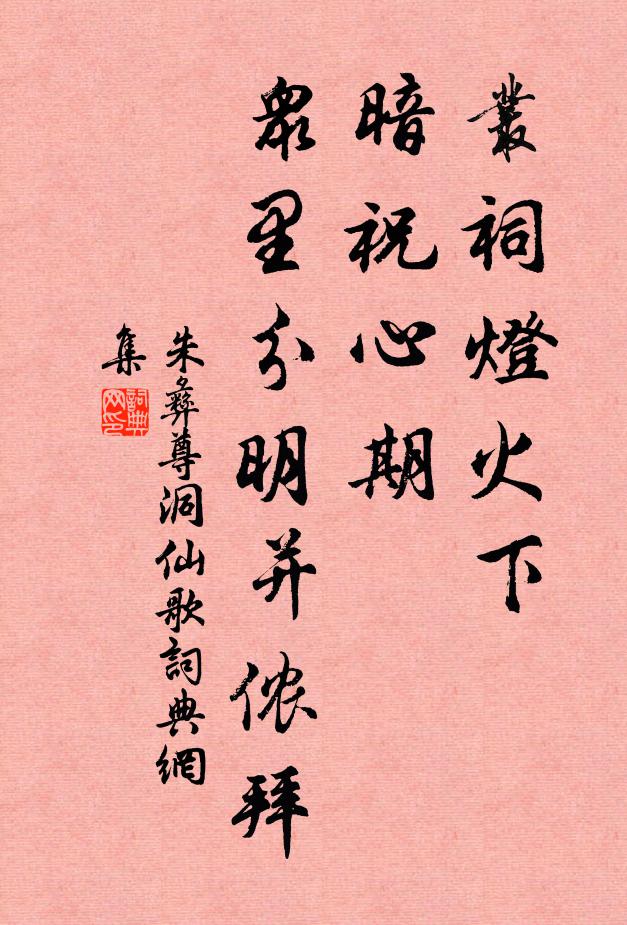 叢祠燈火下
暗祝心期
眾里分明并侬拜
朱彝尊洞仙歌詞典網
集
詞典
网印